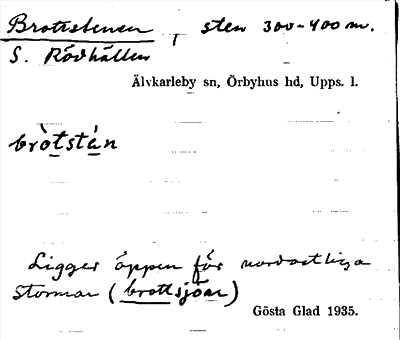 Brottstenen, sten 300-400 m.
S. Rödhällen
Älvkarleby sn, Örbyhus hd, Upps. l.
bròtstàn
Ligger öppen för nordostliga
stormar (brottsjöar)
Gösta Glad 1935.